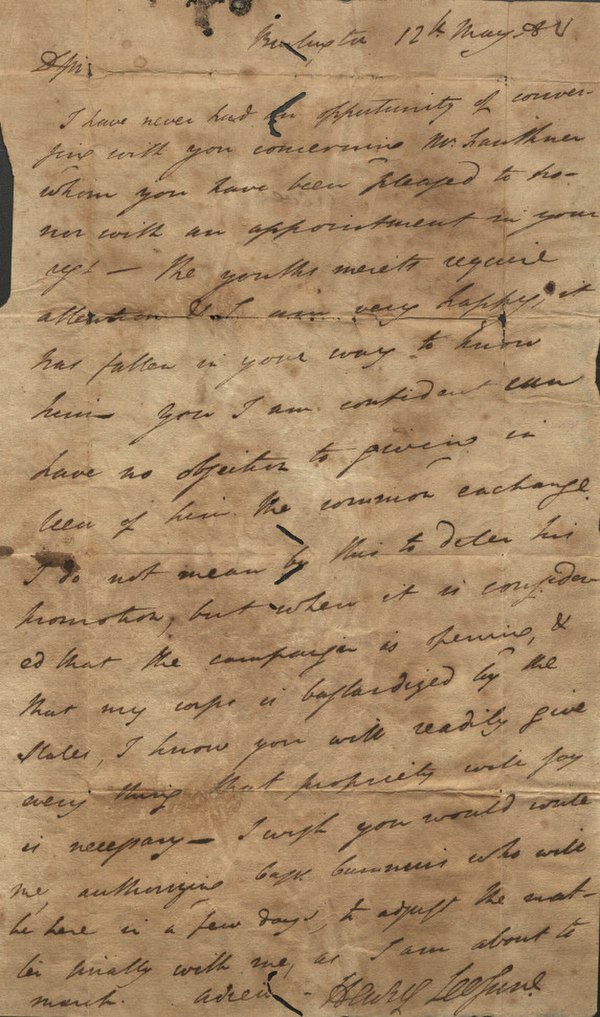 Burlington 12th May 80
D Sir
I have never had an opportunity of conver-
sing with you concerning Mr. Faulkner
whom you have been pleased to ho-
nor with an appointment in your
regt — The youths merits require
attention & I am very happy, it
has fallen in your way to know
him — You I am confident can
have no objection to giving in
lieu of him the common exchange.
I do not mean by this to deter his
promotion, but when it is consider-
ed that the campaign is opening, &
that my corps is bastardized by the
States, I know you will readily give
every thing that propriety will say
is necessary — I wish you would write
me, authorizing Capt. who will
be here in a few days, to adjust the mat-
ter finally with me, as I am about to
march. adieu - Henry Lee Junr.